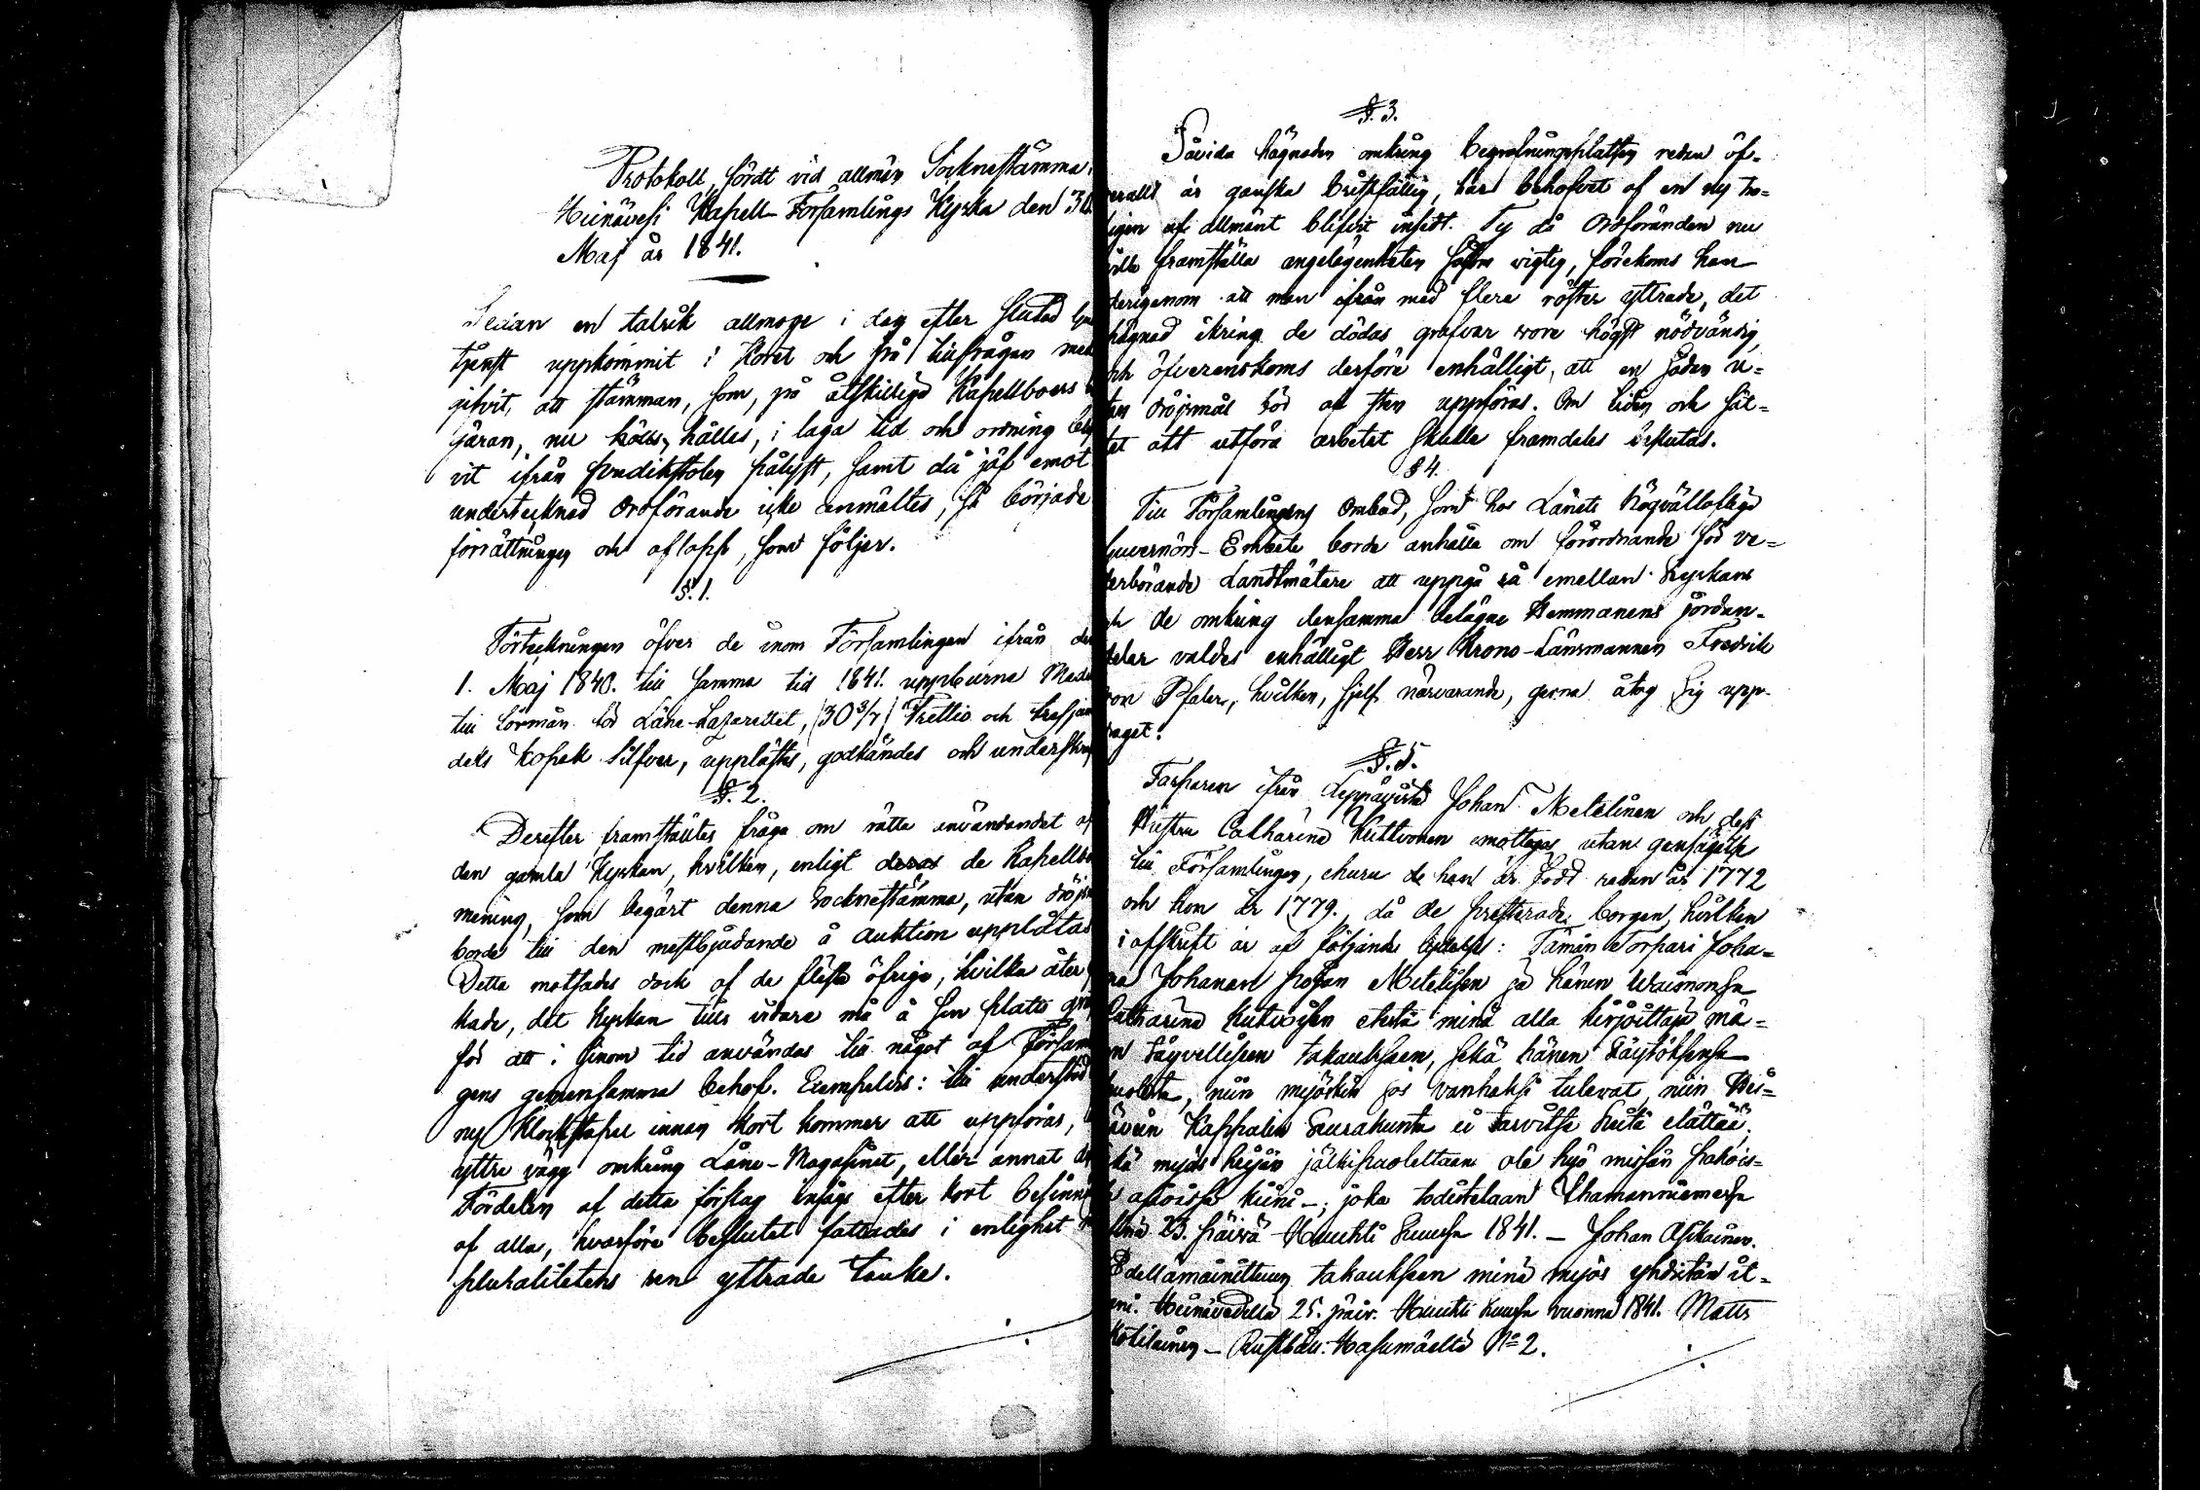 Protokoll, fördt vid allmän Socknestämma i
Heinävesi Kapell-Församlings Kyrka den 30
Maj år 1841.
Sedan en talrik allmoge i dag efter slutad
tjenst uppkommit i Koret och på tillfrågan med
gifvit, att stämman, som, på åtskillige Kapellboers
järan, nu hålles, i laga tid och ordning
vit ifrån predikstolen pålyst, samt då jäf emot
undertecknad Ordförande icke anmältes, så började
förrättningen och aflopp, som följer.
§. 1.
Förteckningen öfver de inom Församlingen ifrån den
1. Maj 1840. till samma tid 1841. uppburna Medel
till förmån för Läne-Lazarettet, (30 3/7) Trettio och tresjun
dels kopek Silfver, upplästes, godkändes och underskrefs
§. 2.
Derefter framställtes fråga om rätta användandet af
den gamla Kyrkan, hvilken, enligt deras de Kapellbo
mening, som begärt denna Socknestämma, utan dröjs
borde till den mestbjudande å auktion upplåtas
Detta motsades dock af de flesta öfrige, hvilka åter
kade, det Kyrkan tills vidare må å sin plats
för att i sinom tid användas till något af Försam
gens gemensamma behof. Exempelvis: till understöd
ny Klockstapel innan kort kommer att uppföras,
yttre vägg omkring Låne-Magasinet, eller annat
Fördelen af detta förslag insågs efter kort besinn
af alla, hvarföre beslutet fattades i enlighet
pluralitetens ren yttrade tanke.
§. 3.
Såvida hägnaden omkring begrafningsplatsen redan öf-
verallt är ganska bristfällig, har behofvet af en ny tro-
ligen af allmänt blifvit insedt. Ty då Ordföranden nu
ville framställa angelägenheten såsom vigtig, förekoms han
derigenom att man ifrån med flera röster yttrade, det
hägnad ikring de dödas grafvar vore högst nödvändig,
och öfverenskoms derföre enhälligt, att en sådan u-
tan dröjsmål bör af sten uppföras. Om tiden och sät-
tet att utföra arbetet skulle framdeles beslutas.
§ 4.
Till Församlingens Ombud, som hos Länets Högvällofliga
Guvernörs-Embete borde anhålla om förordnande för ve-
derbörande Landtmätare att uppgå rå emellan Kyrkans
och de omkring densamma belägne Hemmanens jordan-
delar valdes enhälligt Herr Krono-Länsmannen Fredrik
von Pfaler, hvilken, sjelf närvarande, gerna åtog sig upp-
draget.
§. 5.
Torparen ifrån Leppävirta Johan Metelinen och dess
Hustru Catharina Kuttvonen emottogos utan gensägelse
till Församlingen, ehuru de han är född redan år 1772
och hon år 1779, då de presterade borgen, hvilken
i afskrift är af följande lydelse: Tämän Torpari Joha-
na Johanan pojan Metelisen ja hänen Waimonsa
Catharina Kutvosen etestä minä alla kirjoittaja mä-
n täyvellisen takauksen, sekä hänen käytöksensä
puolesta, niin myöskin jos vanhaksi tulevat, niin Hei-
näveen Kappalin Seurakunta ei tarvitse heitä elättää.
Eikä myös heijän jälkipuolettaan ole hyö missän pahois-
sa asioissa kiini-; joka todistetaan Ihamanniemessä
23. päivä Huuhti kuussa 1841. – Johan Asikainen.
Edellämainittuun takaukseen minä myös yhdistän it-
seni. Heinävedellä 25. päiv. Huuhti kuussa vuonna 1841. Matts
Kotilainen – Rusthål: Hasumäeltä No 2.